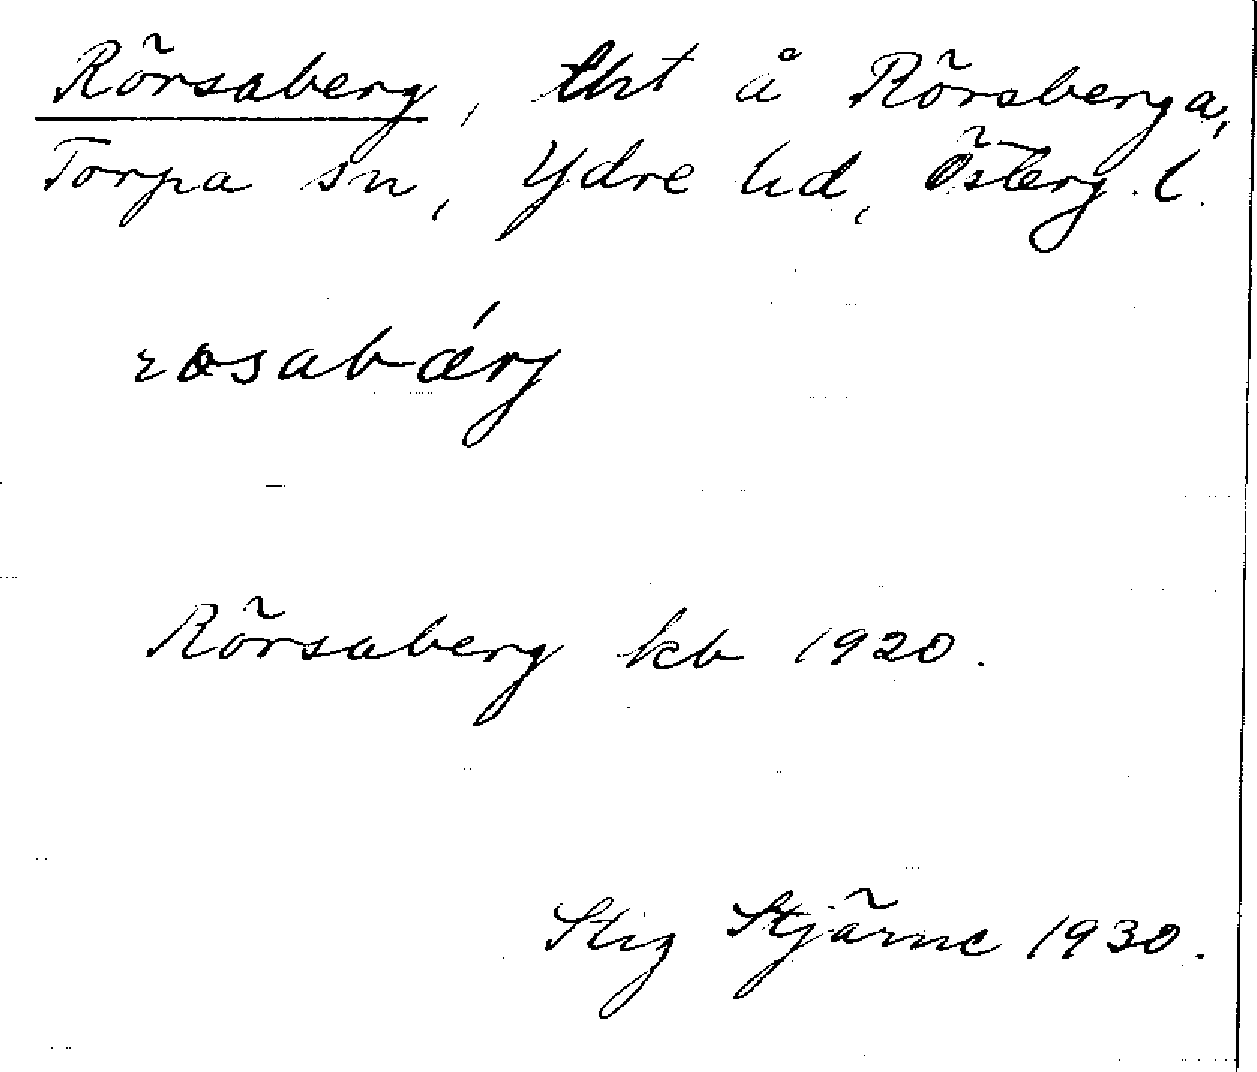 Rörsaberg, tht å Rörsberga,
Torpa sn, Ydre hd, Österg. l.
rosabǽrg
Rörsaberg kb 1920.
Stig Stjärne 1930.